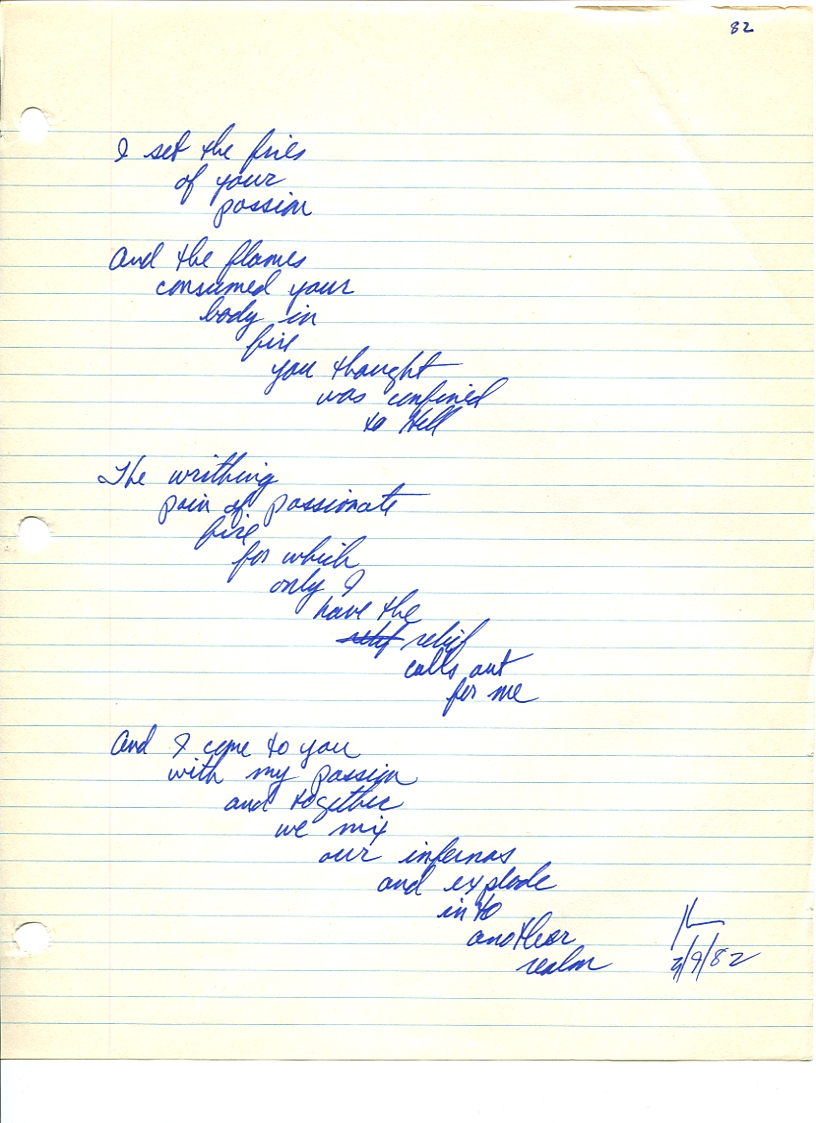 82
I set the fires
of your
passion
And the flames
consumed your
body in
fire
you thought
was confined
to Hell
The writhing
pain of passionate
fire
for which
only I
have the
relief
calls out
for me
And I come to you
with my passion
and together
we mix
our infernos
and explode
into
another
realm
/9/82